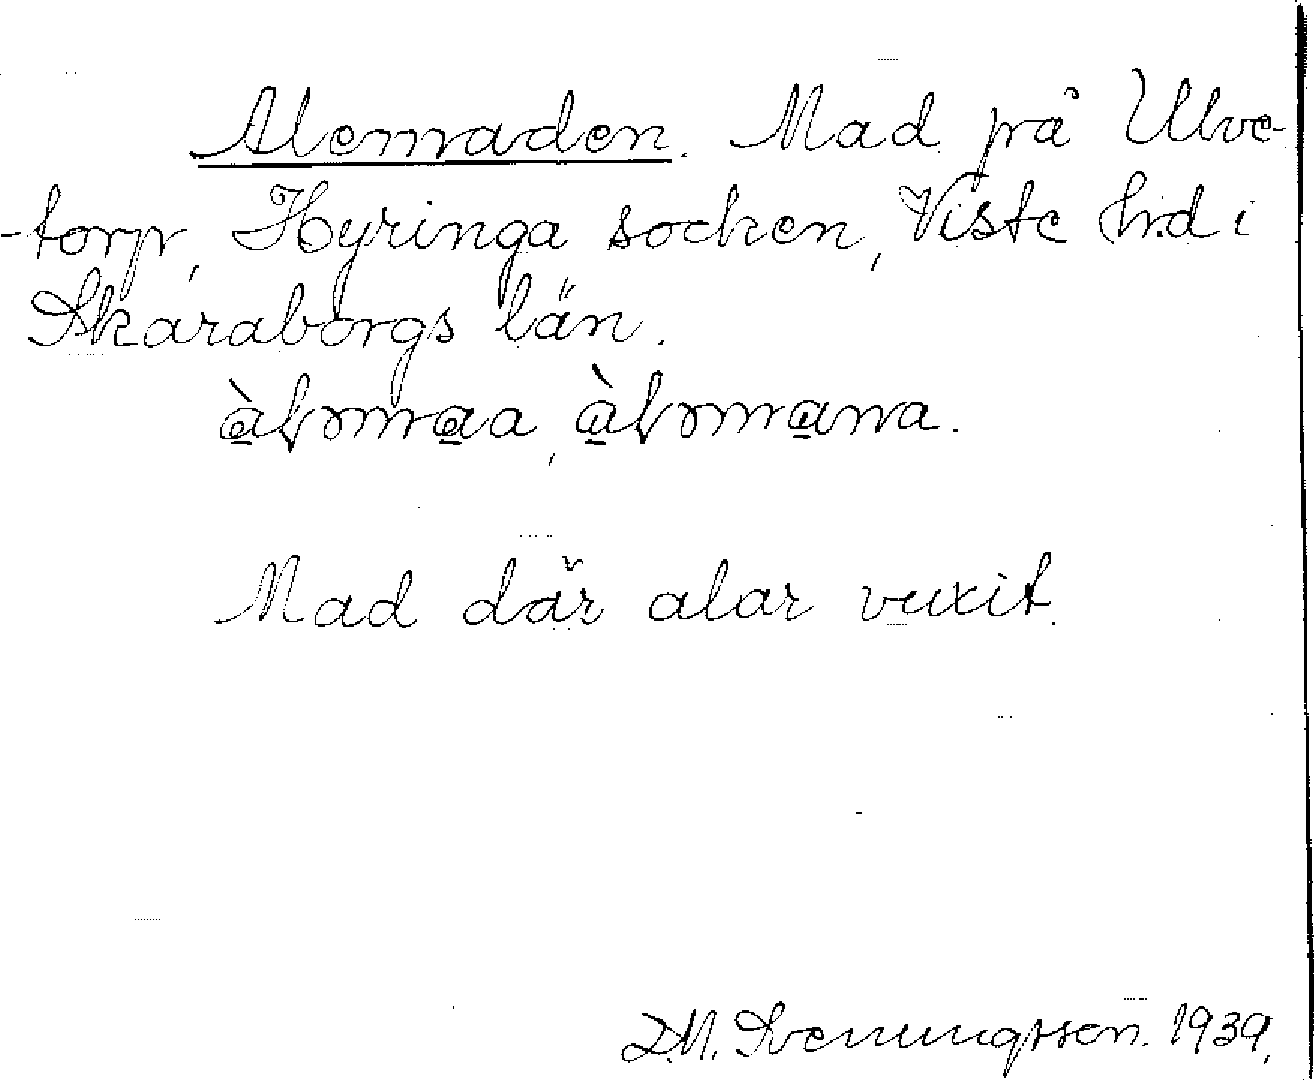 Alemaden. Mad på Ulve-
-torp, Hyringa socken, Viste h:d i
Skaraborgs län.
Mad där alar vuxit.
D.M. Svenungsson. 1939.